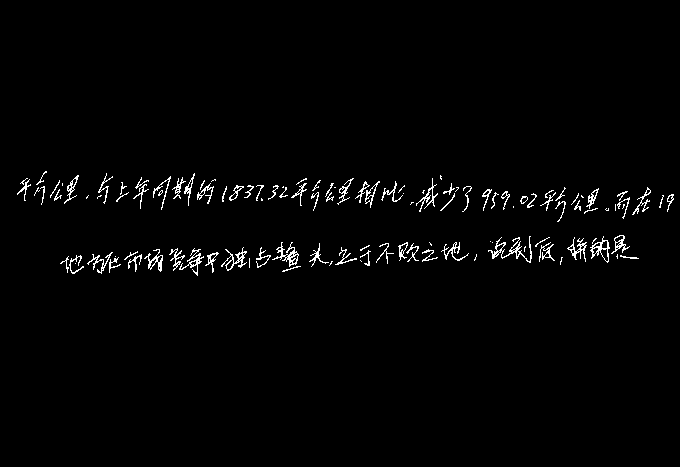 平方公里,与上年同期的1837.32平方公里相比,减少了959.02平方公里。而在19
地方在市场竞争中独占鳌头,立于不败之地,说到底,拼的是